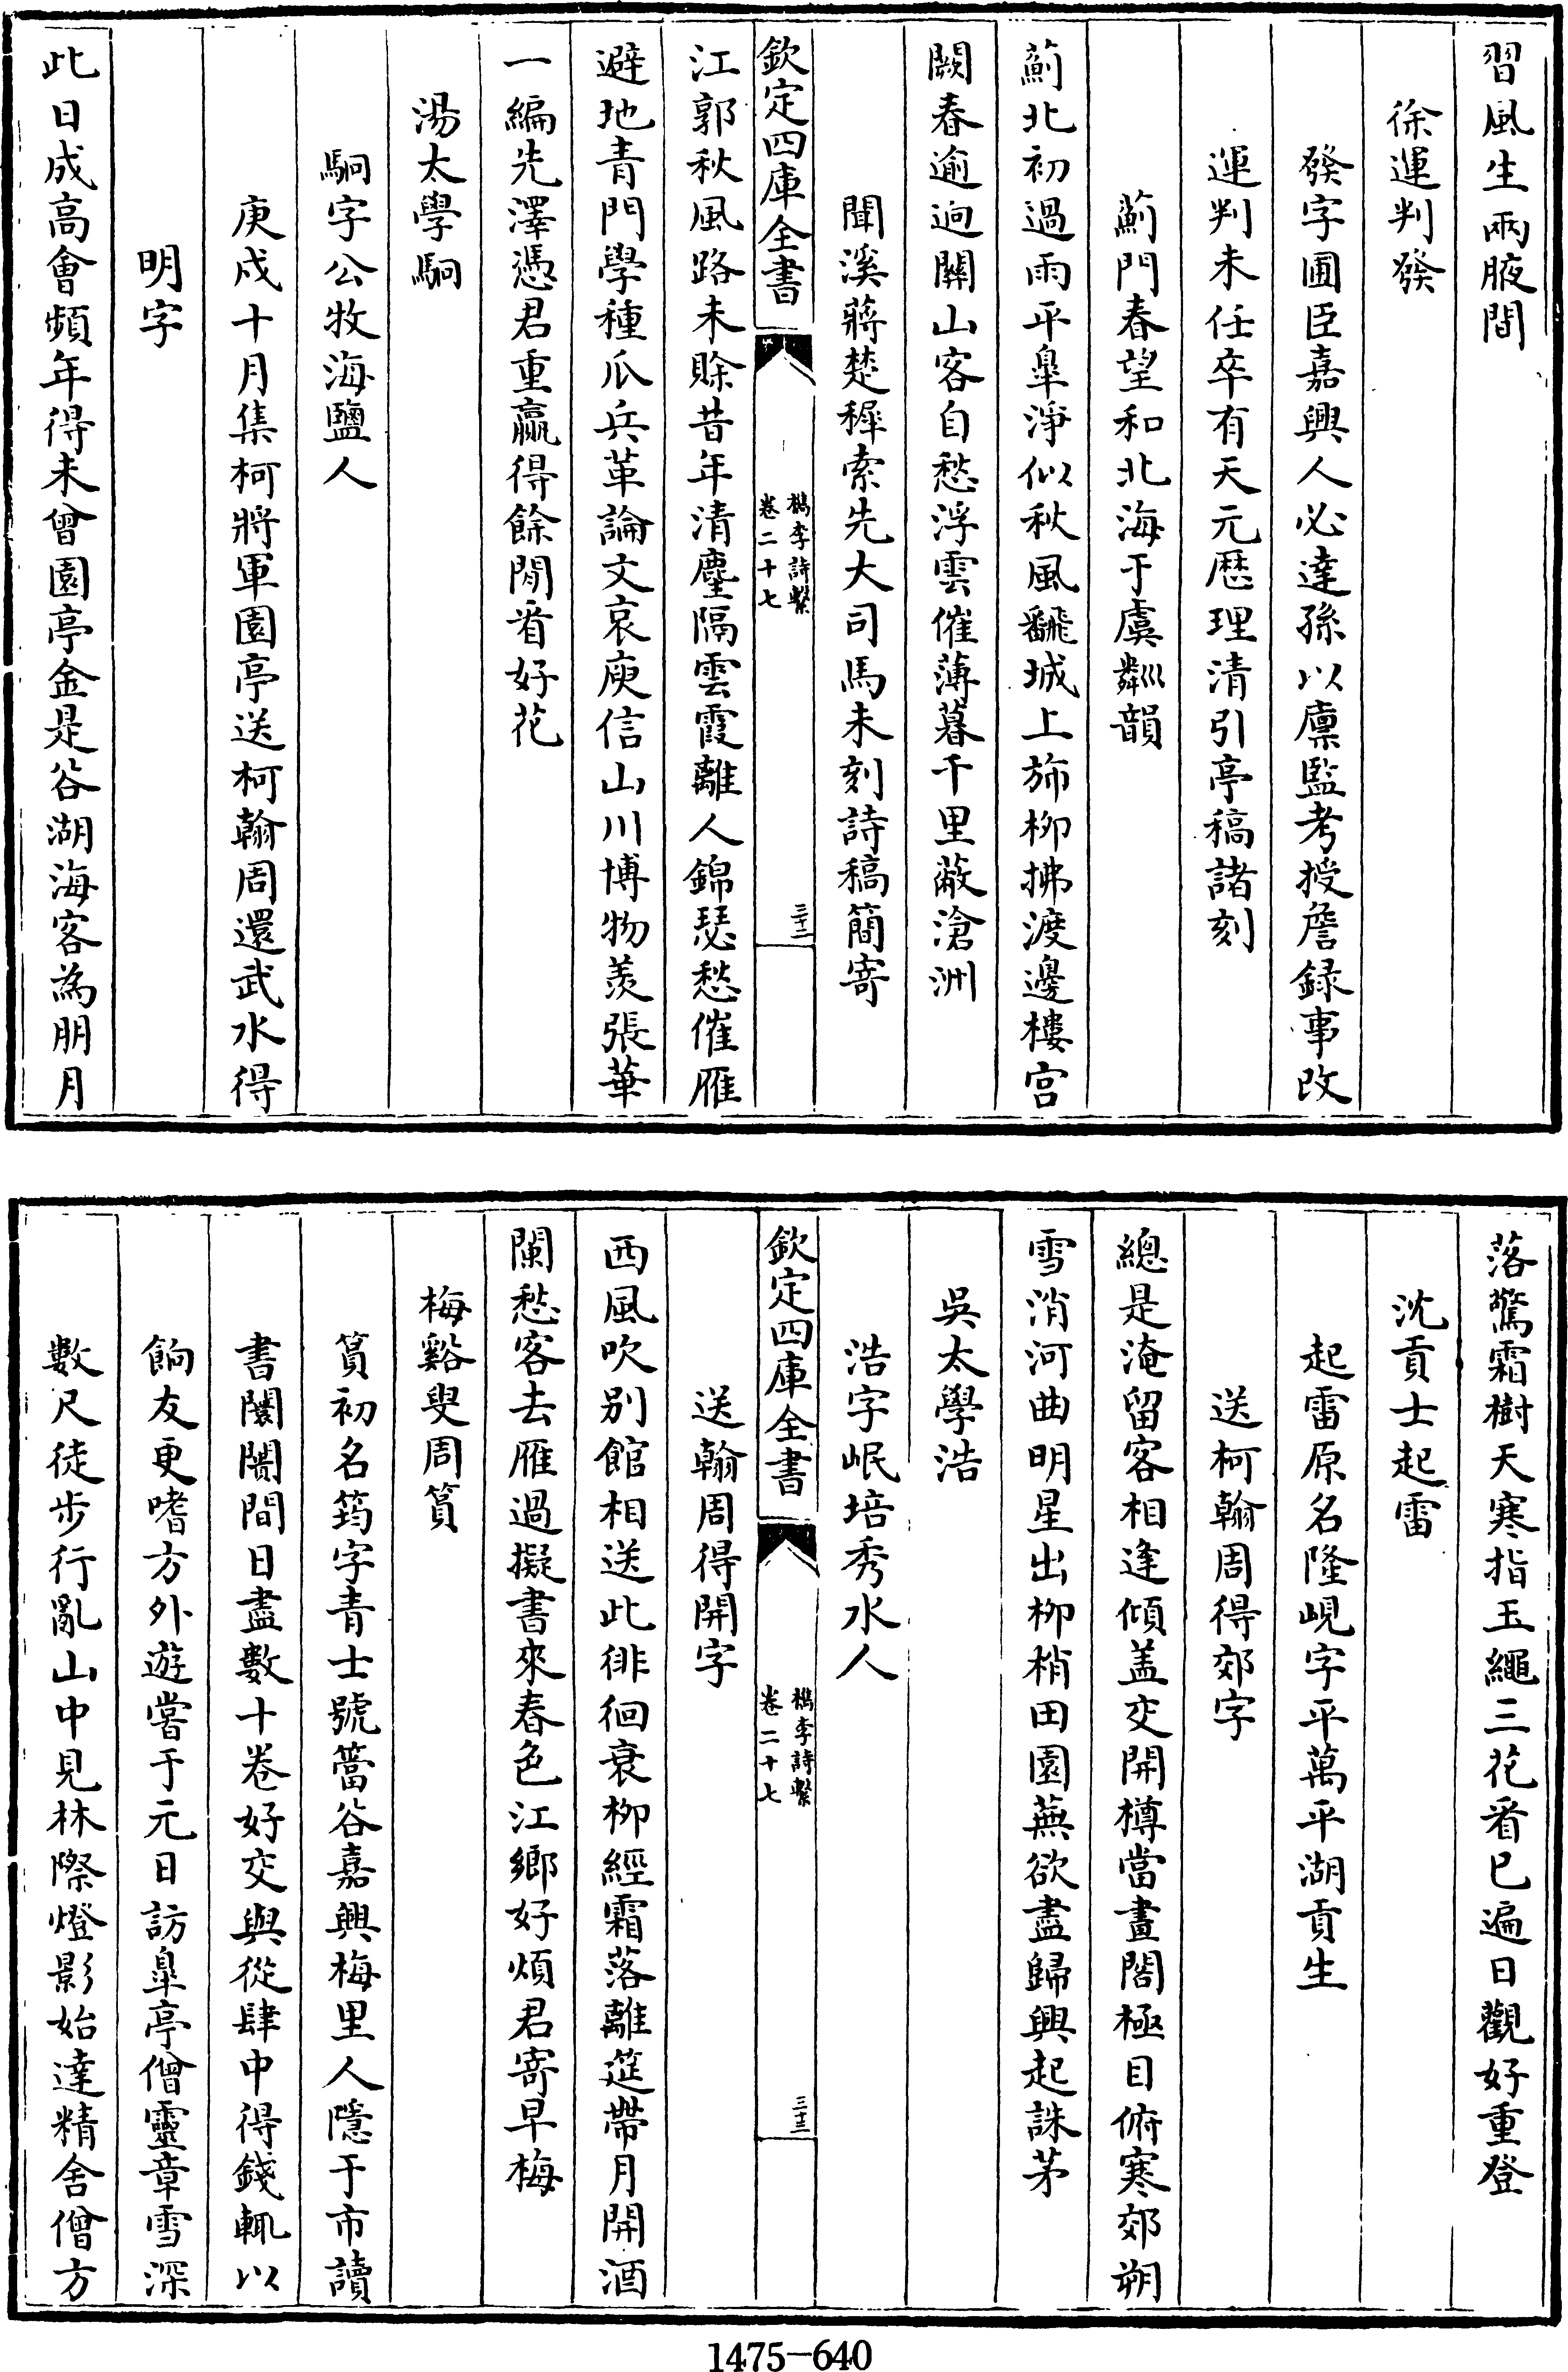 習風生兩腋間
徐運判發
發字圃臣嘉興人必達孫以廪監考授詹録事改
運判未任卒有天元歴理清引亭稿諸刻
薊門春望和北海于虞粼韻
薊北初過雨平臯淨似秋風飜城上斾栁拂渡邊樓宫
闕春逾迥闗山客自愁浮雲催薄暮千里蔽滄洲
聞溪蔣楚穉索先大司馬未刻詩稿簡寄
欽定四庫全書
檇李詩繫
卷二十七
三十二
江郭秋風路未賖昔年清塵隔雲霞離人錦瑟愁催雁
避地青門學種瓜兵革論文哀庾信山川博物羨張華
一編先澤憑君重贏得餘閒看好花
湯太學駉
駉字公牧海鹽人
庚戍十月集柯將軍園亭送柯翰周還武水得
明字
此日成高會頻年得未曾園亭金是谷湖海客為朋月
落驚霜樹天寒指玉繩三花看已遍日觀好重登
沈貢士起雷
起雷原名隆峴字平萬平湖貢生
送柯翰周得郊字
總是淹留客相逢傾盖交開樽當畫閣極目俯寒郊朔
雪消河曲明星出栁梢田園蕪欲盡歸興起誅茅
吳太學浩
浩字岷培秀水人
欽定四庫全書
檇李詩繫
卷二十七
三十三
送翰周得開字
西風吹别館相送此徘徊衰栁經霜落離筵帶月開酒
闌愁客去雁過擬書來春色江鄉好煩君寄早梅
梅谿叟周篔
篔初名筠字青士號簹谷嘉興梅里人隱于市讀
書闤闠間日盡數十卷好交與從肆中得錢輒以
餉友更嗜方外遊嘗于元日訪臯亭僧靈章雪深
數尺徒步行亂山中見林際燈影始達精舍僧方
1475-640